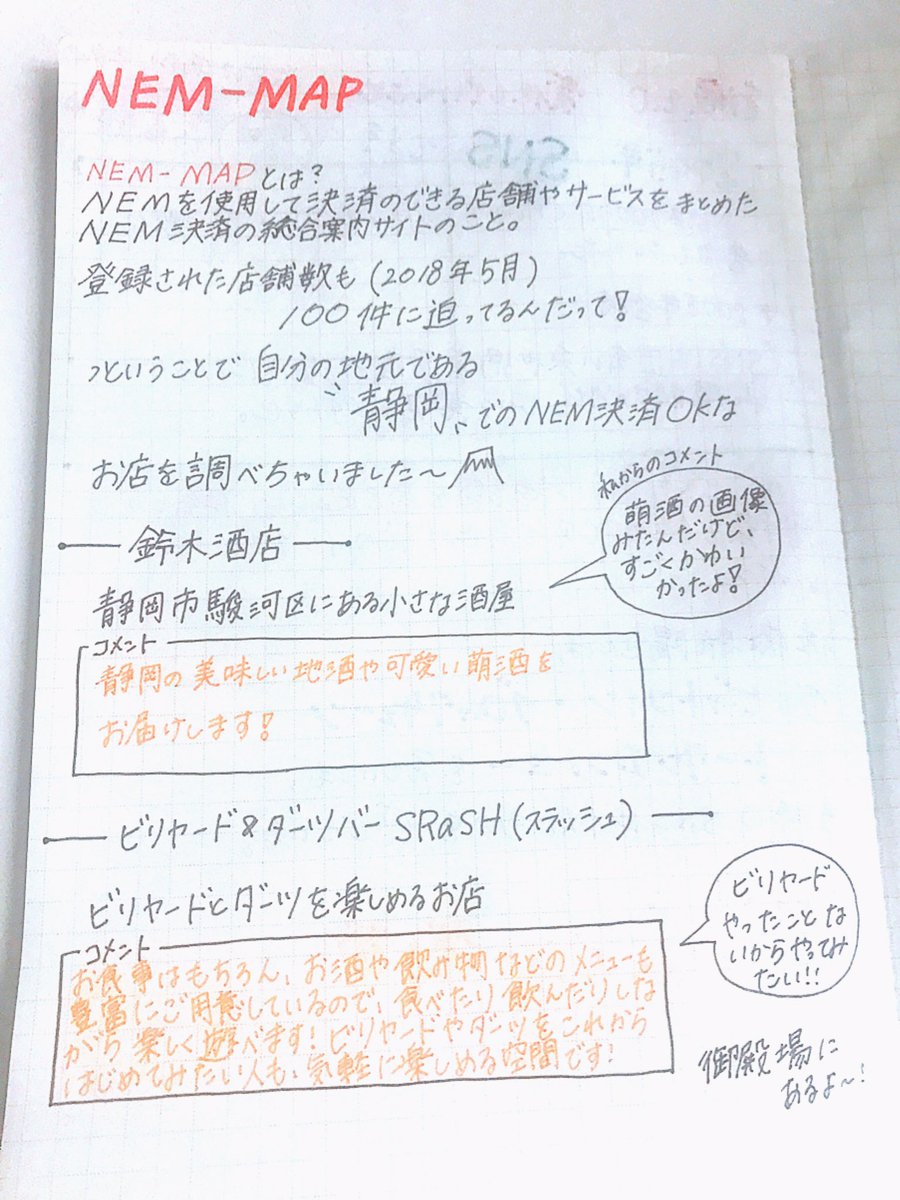 NEM-MAP
NEM-MAPとは?
NEMを使用して決済のできる店舗やサービスをまとめた
NEM決済の総合案内サイトのこと。
登録された店舗数も(2018年5月)
100件に迫ってるんだって!
ということで 自分の地元である
静岡 でのNEM決済OKな
お店を調べちゃいました〜
私からのコメント
萌酒の画像
みたんだけど、
すごくかわい
かったよ!
鈴木酒店
静岡市駿河区にある小さな酒屋
コメント
静岡の美味しい地酒や可愛い萌酒を
お届けします!
ビリヤード&ダーツバー SRaSH(スラッシュ)
ビリヤードとダーツを楽しめるお店
ビリヤード
やったことな
いからやってみ
たい!!
コメント
お食事はもちろん、お酒や飲み物などのメニューも
豊富にご用意しているので、食べたり飲んだりしな
がら楽しく遊べます!ビリヤードやダーツをこれから
はじめてみたい人も、気軽に楽しめる空間です!
御殿場に
あるよ〜!